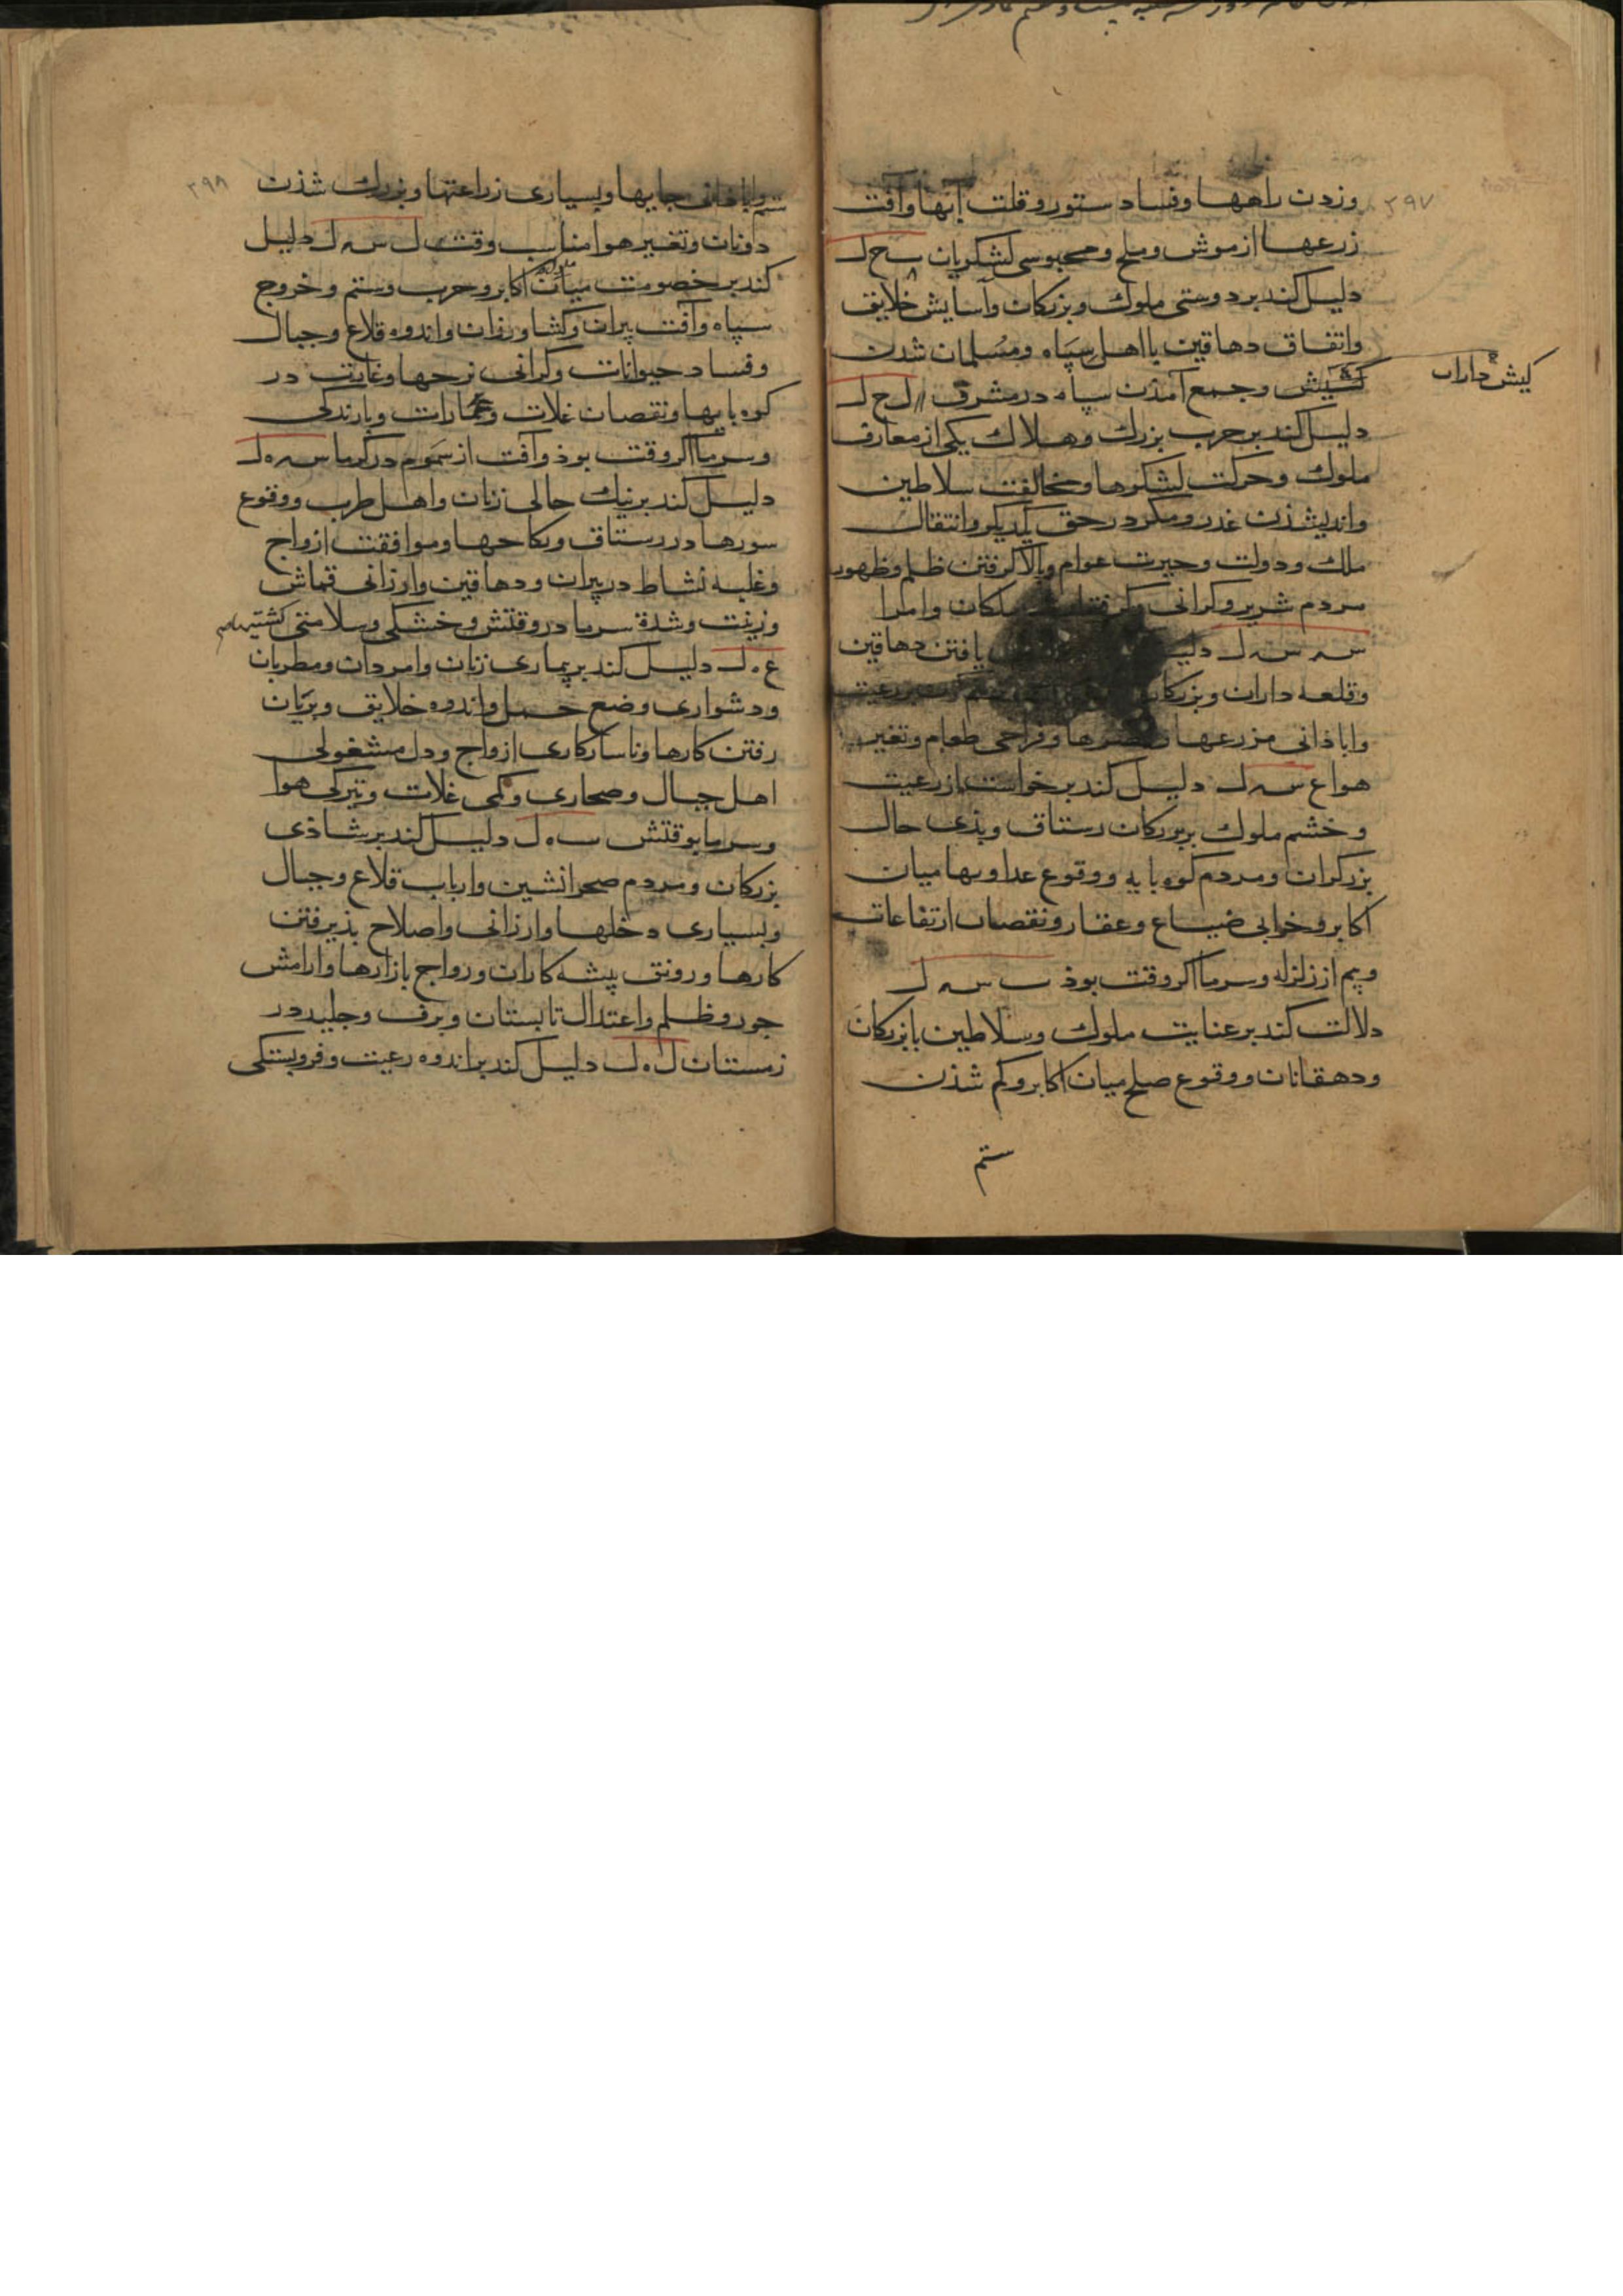 ۲۹۷
وزدن راهها وفساد ستور وقلت آبها وآفت
زرعها از موش و ملخ و محبوسی لشکریان ب ح ل
دلیل کند بر دوستی ملوک و بزرکان وآسایش خلایق
واتفاق دهاقین با اهل سپاه ومسلمان شدن
کیش داران
وجمع آمذن سپاه در مشرق ل ح ل
دلیل کند بر حرب بزرک وهلاک یکی از معارف
ملوک و حرکت لشکرها و مخالفت سلاطین
واندیشذن غدر ومکر در حق یکدیکر وانتقال
ملک ودولت وحیرت عوام وبالا کرفتن ظلم وظهور
مردم شریر وکرانی وامرا
س س ل یافتن دهاقین
وقلعه داران و
واباذانی مزرعها وفراخی طعام وتغیر
هوا ع س ل دلیل کند بر خواست از رعیت
وخشم ملوک بر بزرکان رستاق وبذی حال
بزرکران ومردم کوه بایه ووقوع عداوتها میان
اکابر وخرابی ضیاع وعقار ونقصان ارتفاعات
وبیم از زلزله وسرما اکر وقت بوذ ب س ل
دلالت کند بر عنایت ملوک وسلاطین با بزرکان
ودهقانان ووقوع صلح میان اکابر وکم شذن
ستم
۲۹۸
ستم واباذانی جایها وبسیاری زراعتها وبزرک شذن
دونان وتغییر هوا مناسب وقت ل س ل دلیل
کند بر خصومت میان اکابر وحرب وستم وخروج
سپاه وآفت پیران وکشاورزان واندوه قلاع وجبال
وفساد حیوانات وکرانی نرخها وغایت در
کوه بایها ونقصان غلات وعمارات وبارندکی
وسرما اکر وقت بوذ وآفت از سموم در کرما س ه ل
دلیل کند بر نیک حالی زنان واهل طرب ووقوع
سورها در رستاق ونکاحها وموافقت ازواج
وغلبه نشاط در پیران ودهاقین وارزانی قماش
وزینت وشدة سرما در وقتش وخشکی وسلامتی کشتیها
ع ه ل دلیل کند بر بیماری زنان وامردان ومطربان
ودشواری وضع حمل واندوه خلایق وبزیان
رفتن کارها وناسازکاری ازواج ودل مشغولی
اهل جبال وصحاری وکمی غلات وتیرکی هوا
وسرما بوقتش ب ه ل دلیل کند بر شاذی
بزرکان ومردم صحرانشین وارباب قلاع وجبال
وبسیاری دخلها وارزانی واصلاح بذیرفتن
کارها ورونق پیشه کاران ورواج بازارها وارامش
جور وظلم واعتدال تابستان وبرف وجلید در
زمستان ل ه ل دلیل کند بر اندوه رعیت وفروبستکی